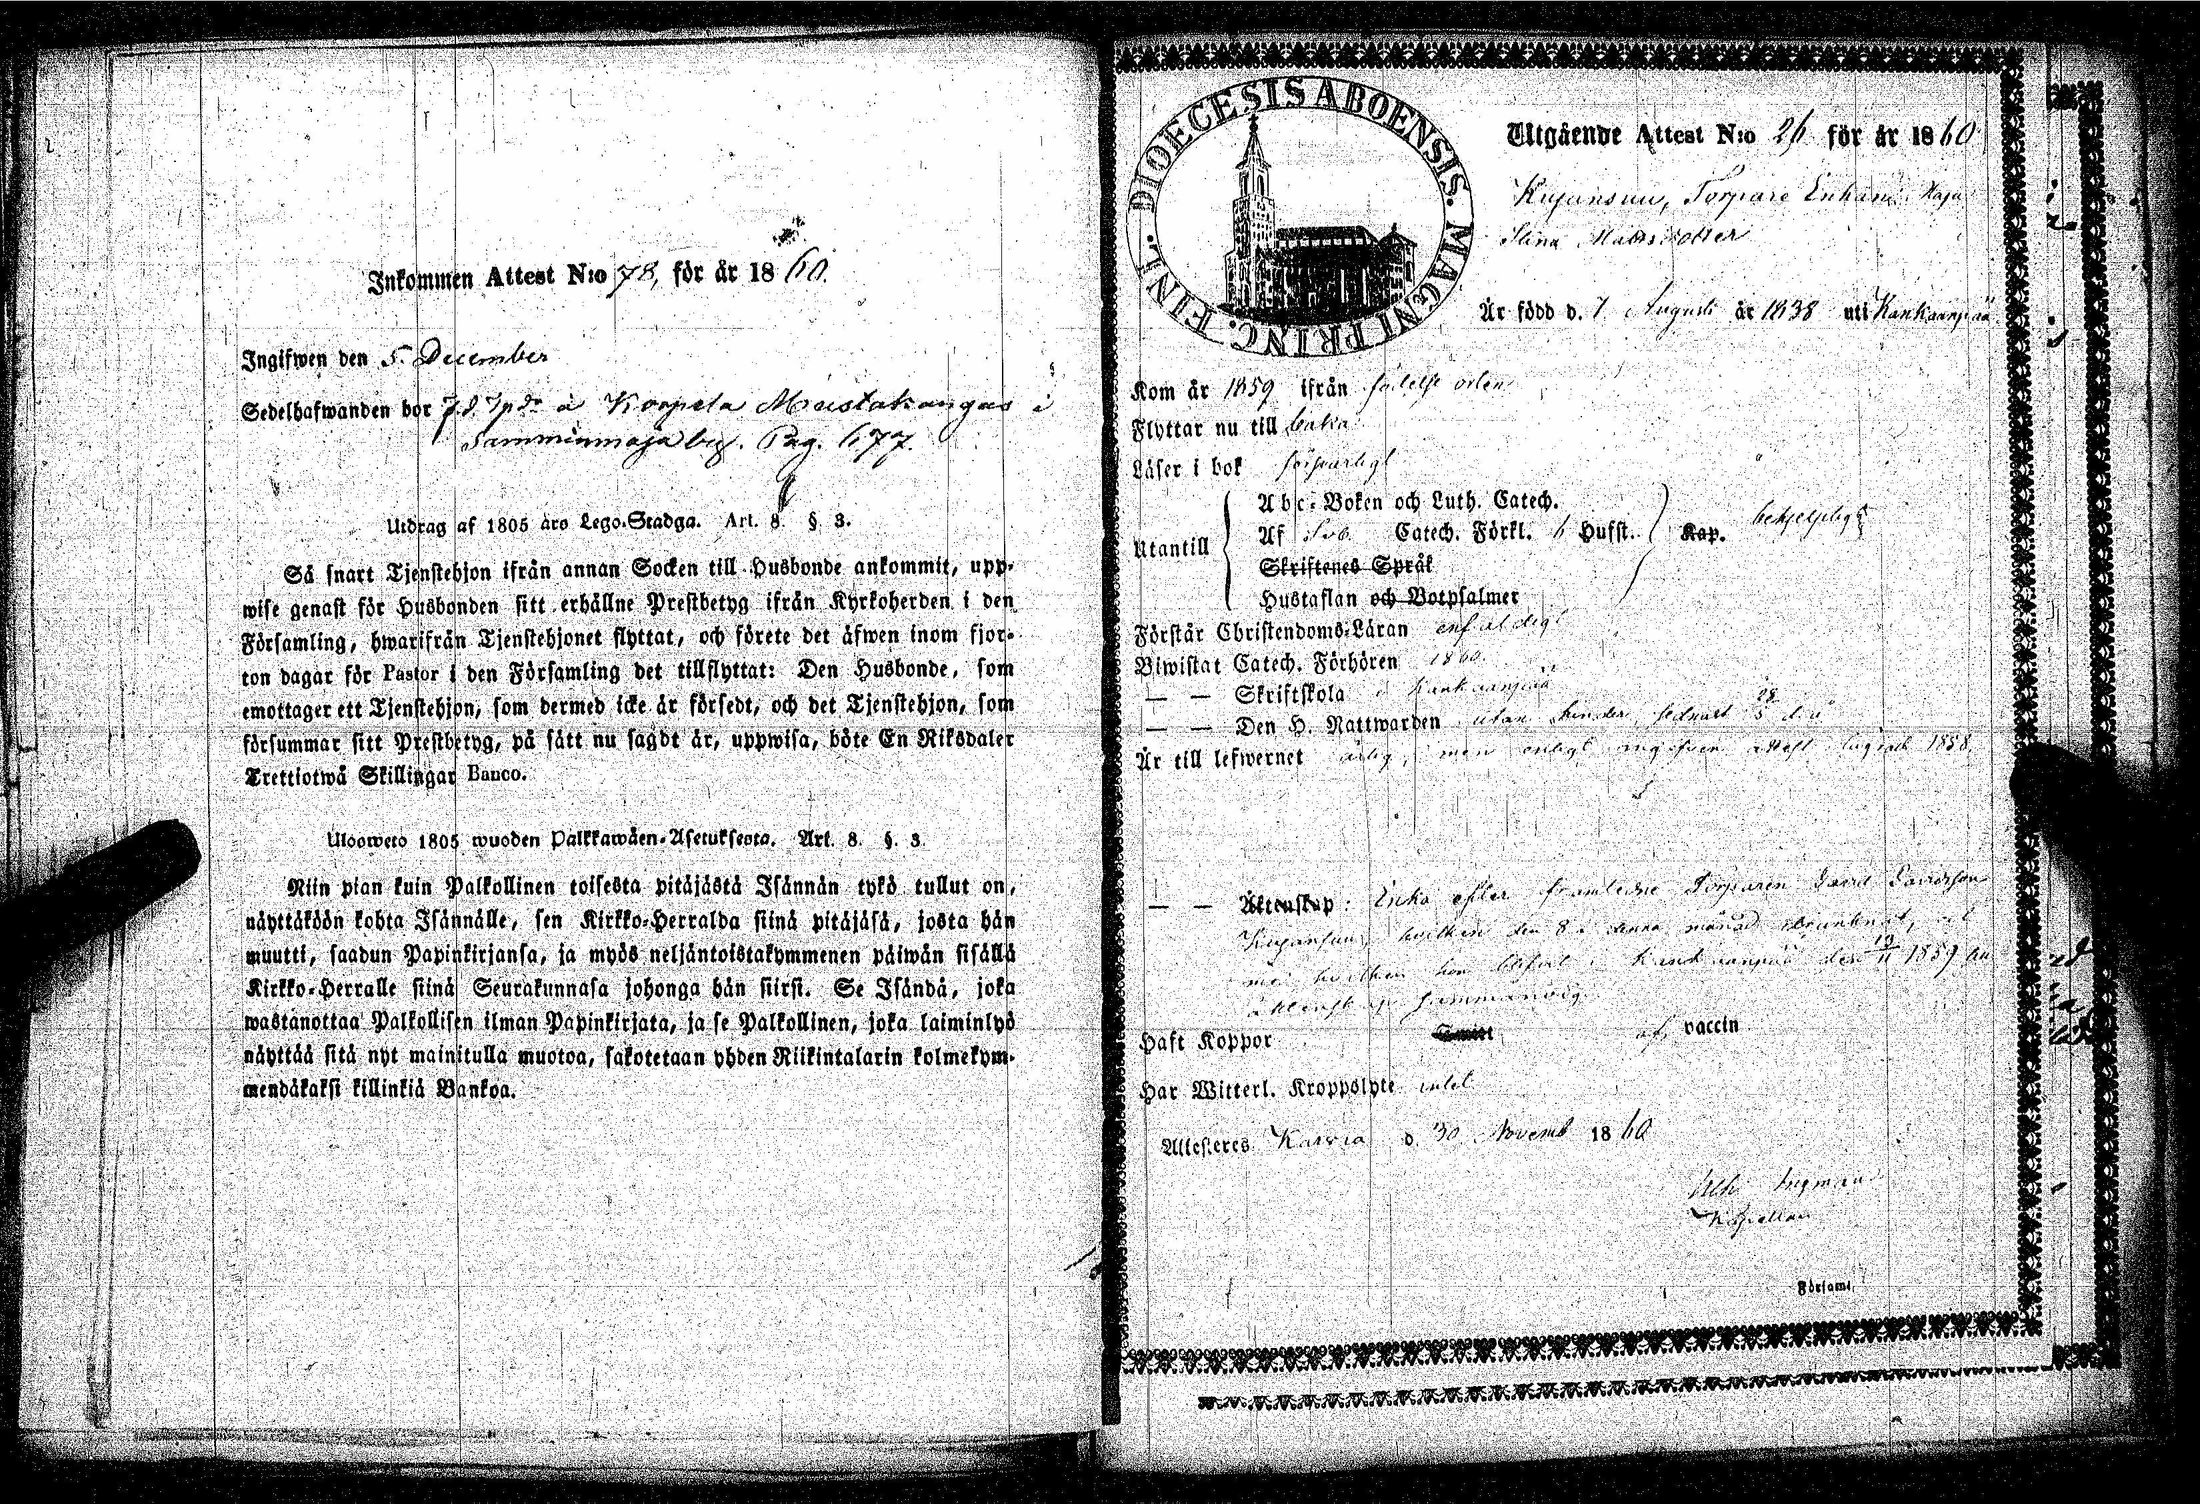 Inkommen Attest N:o 78, för år 1860.
Ingifwen den 5. December
Sedelhafwanden bor på Korpela Mustakangas i
Samminmaja by. Pag. 677.
Utdrag af 1805 års Lego-Stadga. Art. 8. § 3.
Så snart Tjenstehjon ifrån annan Socken till Husbonde ankommit, upp-
wise genast för Husbonden sitt erhållne Prestbetyg ifrån Kyrkoherden i den
Församling, hwarifrån Tjenstehjonet flyttat, och förete det äfwen inom fjor-
ton dagar för Pastor i den Församling det tillflyttat: Den Husbonde, som
emottager ett Tjenstehjon, som dermed icke är försedt, och det Tjenstehjon, som
försummar sitt Prestbetyg, på sätt nu sagdt är, uppwisa, böte En Riksdaler
Trettiotwå Skillingar Banco.
Ulosweto 1805 wuoden Palkkawäen-Asetuksesta. Art. 8. §. 3.
Niin pian kuin Palkollinen toisesta pitäjästä Isännän tykö tullut on,
näyttäköön kohta Isännälle, sen Kirkko-Herralda siinä pitäjäsä, josta hän
muutti, saadun Papinkirjansa, ja myös neljäntoistakymmenen päiwän sisällä
Kirkko-Herralle siinä Seurakunnasa johonga hän siirsi. Se Isändä, joka
wastanottaa Palkollisen ilman Papinkirjata, ja se Palkollinen, joka laiminlyö
näyttää sitä nyt mainitulla muotoa, sakotetaan yhden Riikintalarin kolmekym-
mendäkaksi killinkiä Bankoa.
DIOECESIS ABOENSIS. MAGNI PRINC. FINL.
Utgående Attest N:o 26 för år 1860
Kujansuu, Torpare Enkan Maja
Stina Mattsdotter
Är född d. 7 Augusti år 1838 uti Kankaanpää
Kom år 1859 ifrån födelse orten
Flyttar nu till baka
Läser i bok försvarligt
Utantill
Abc-Boken och Luth. Catech.
Af Svb. Catech. Förkl. 6 Hufst. Kap. behjelpligt
Skriftenes Språk
Hustaflan och Botpsalmer
Förstår Christendoms-Läran enfaldigt
Biwistat Catech. Förhören 1860.
— — Skriftskola i Kankaanpää
— — Den H. Nattwarden utan hinder, sednast 28/5 d. å.
Är till lefwernet ärlig, men enligt ingifven attest lägrad 1858.
— — Äktenskap: Enka efter framledne Torparen David Davidsson
Kujansuu, hvilken den 8 i denna månad drunknat, och
med hvilken hon blifvit i Kankaanpää den 19/11 1859 till
äktenskap sammanvigd.
Haft Koppor af vaccin
Har Witterl. Kroppslyte intet
Attesteres Karvia d. 30 Novemb 1860
Ingman
Kapellan
Församl.